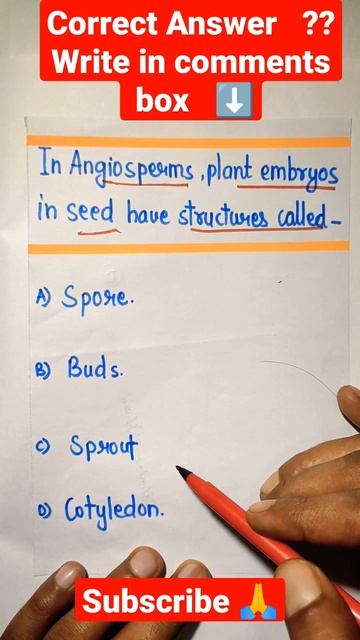 Correct Answer ??
Write in comments
box ⬇️
In Angiosperms, plant embryos
in seed have structures called-
A) Spore.
B) Buds.
C) Sprout
D) Cotyledon.
Subscribe 🙏